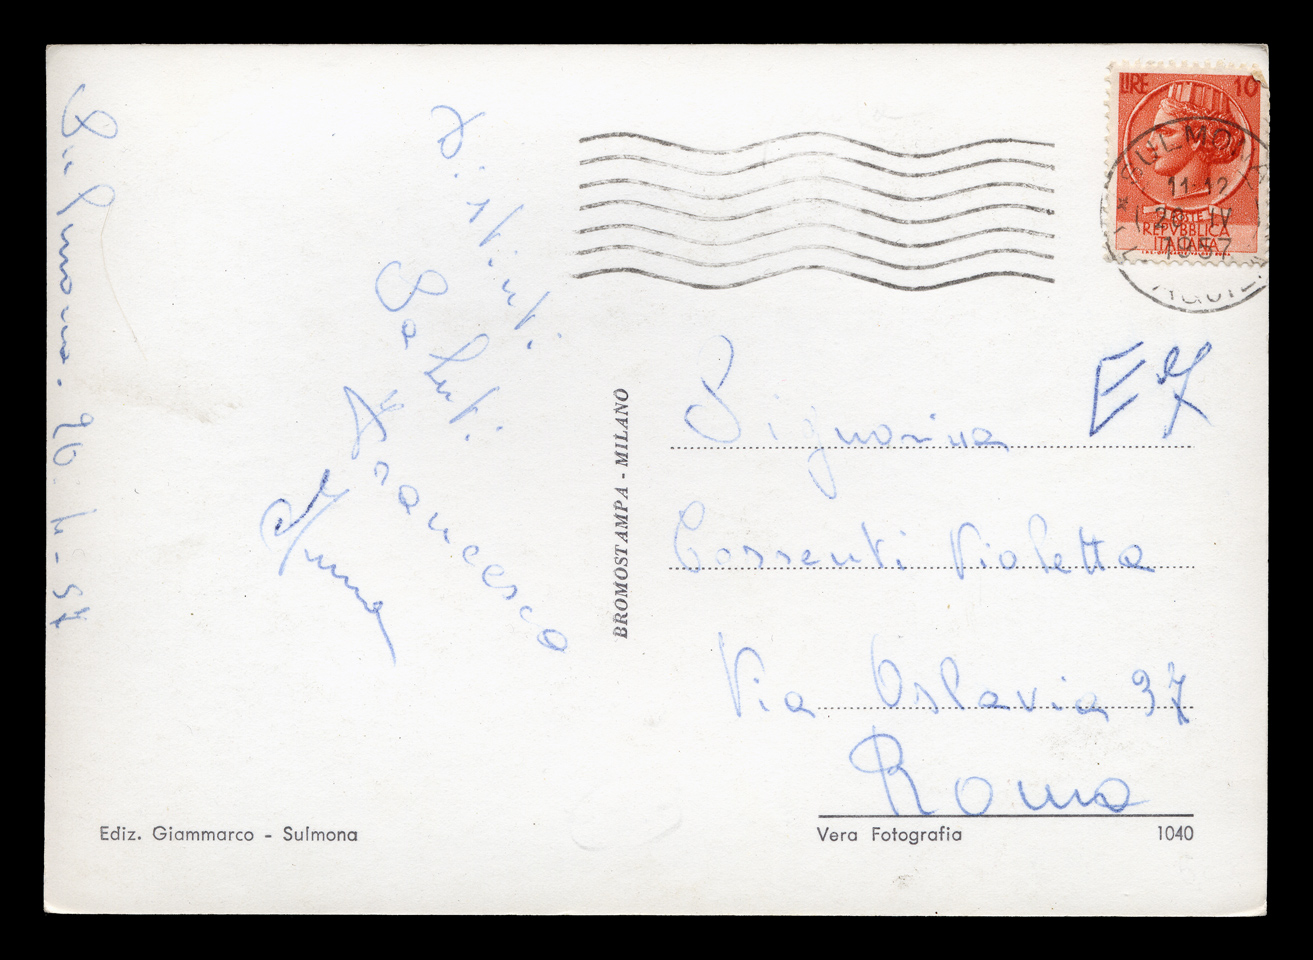 Sulmona. 20-4-57
Distinti
Saluti.
Francesco
BROMOSTAMPA - MILANO
LIRE 10
POSTE
REPVBBLICA
ITALIANA
SULMONA
11-12
20 IV
1957
AQUILA
E7
Signorina
Cossenti Violetta
Via Oslavia 37
Roma
Ediz. Giammarco - Sulmona
Vera Fotografia
1040